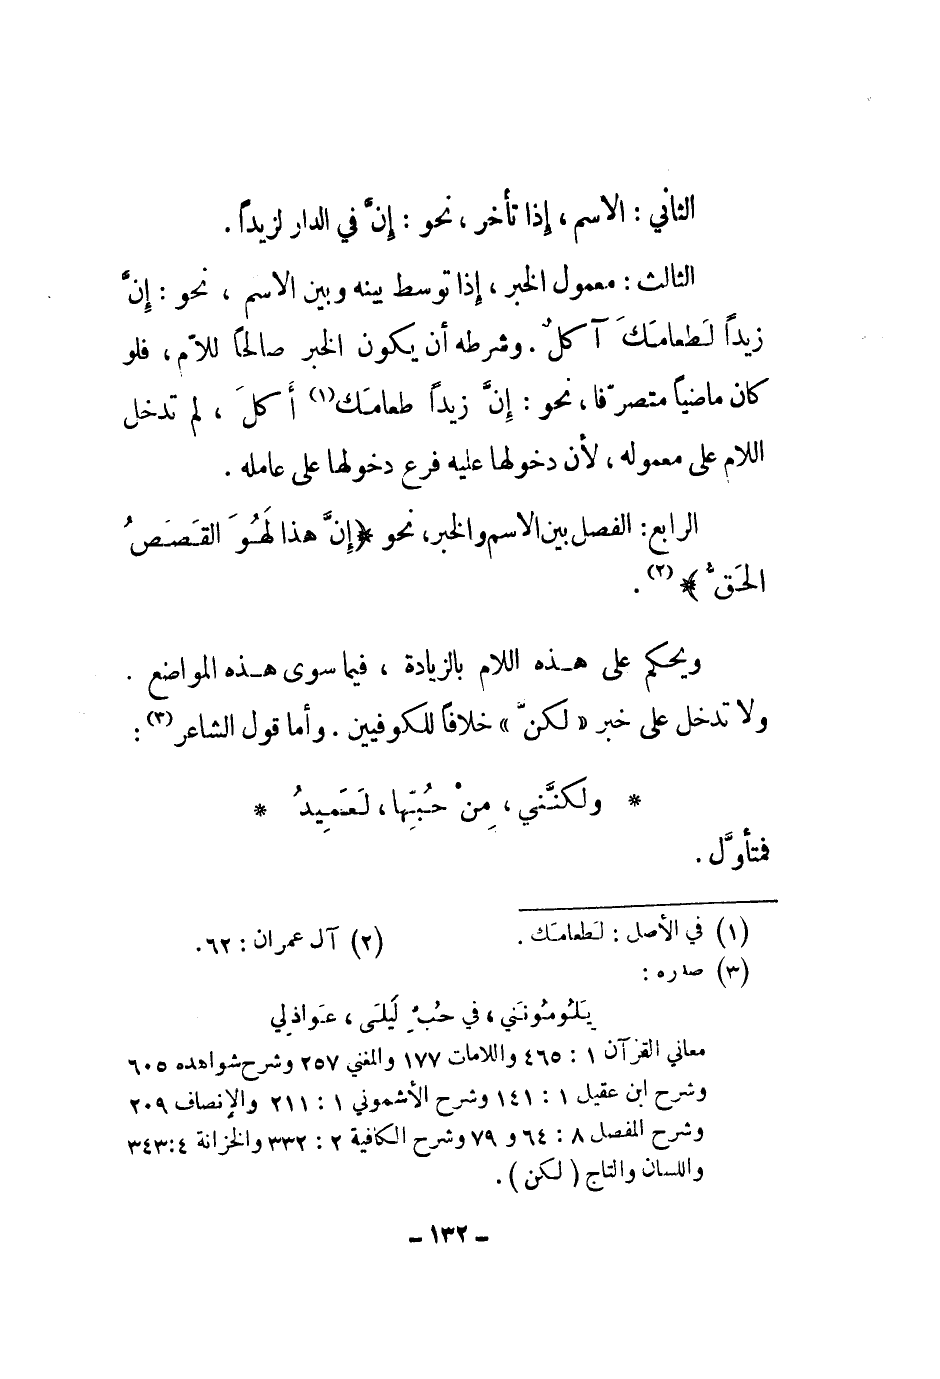 الثاني : الاسم ، إذا تأخر ، نحو : إنَّ في الدار لزيداً .
الثالث : معمول الخبر ، إذا توسط بينه وبين الاسم ، نحو : إنَّ
زيداً لَطعامَكَ آكلٌ . وشرطه أن يكون الخبر صالحاً للاّم ، فلو
كان ماضياً متصرّفا ، نحو : إنَّ زيداً طعامَك(١) أَكلَ ، لم تدخل
اللام على معموله ، لأن دخولها عليه فرع دخولها على عامله .
الرابع : الفصل بين الاسم والخبر ، نحو ﴿إنَّ هذا لَهُوَ القَصَصُ
الحَقُّ﴾(٢) .
ويحكم على هـذه اللام بالزيادة ، فيما سوى هـذه المواضع .
ولا تدخل على خبر « لكنّ » خلافاً للكوفيين . وأما قول الشاعر(٣) :
* ولكنَّني ، مِنْ حُبِّها ، لَعَمِيدُ *
فمتأوَّل .
(١) في الأصل : لَطعامَك . (٢) آل عمران : ٦٢ .
(٣) صدره :
يَلُومُونَني ، في حُبِّ لَيلَى ، عَواذلِي
معاني القرآن ١ : ٤٦٥ واللامات ١٧٧ والمغني ٢٥٧ وشرح شواهده ٦٠٥
وشرح ابن عقيل ١ : ١٤١ وشرح الأشموني ١ : ٢١١ والإنصاف ٢٠٩
وشرح المفصل ٨ : ٦٤ و ٧٩ وشرح الكافية ٢ : ٣٣٢ والخزانة ٤:٣٤٣
واللسان والتاج ( لكن ) .
– ١٣٢ –